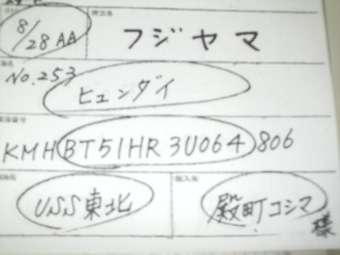 8/28 AA フジヤマ
No.253
ヒュンダイ
KMHBT51HR3U064806
USS東北 殿町コシマ様